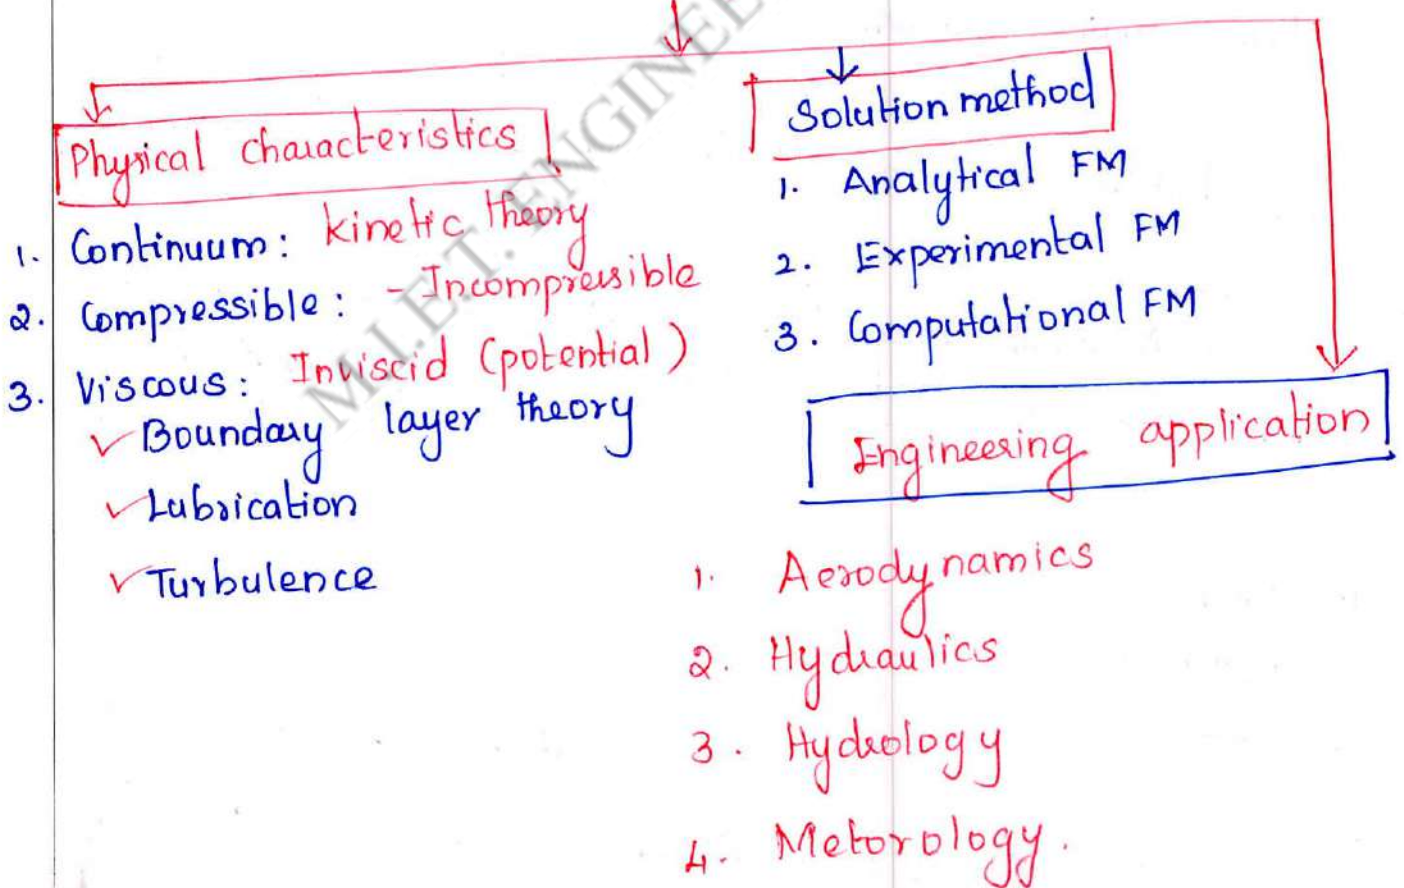 Physical characteristics
1. Continuum: kinetic theory
2. Compressible: - Incompressible
3. Viscous: Inviscid (potential)
✓ Boundary layer theory
✓ Lubrication
✓ Turbulence
Solution method
1. Analytical FM
2. Experimental FM
3. Computational FM
Engineering application
1. Aerodynamics
2. Hydraulics
3. Hydrology
4. Metorology.
M.I.E.T. ENGINEE